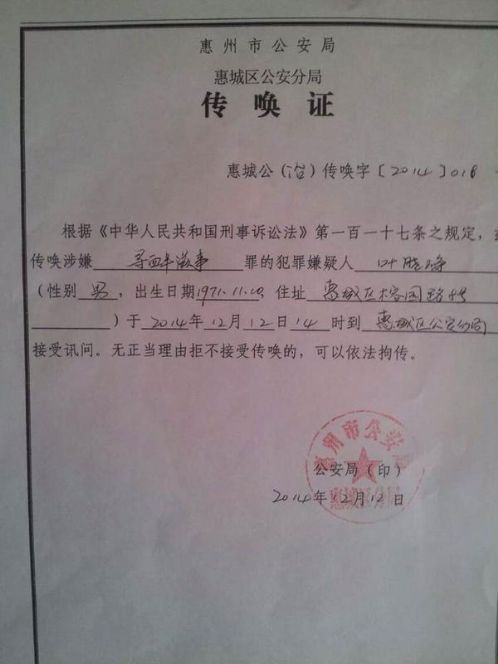 惠州市公安局
惠城区公安分局
传唤证
惠城公（治）传唤字〔2014〕018
根据《中华人民共和国刑事诉讼法》第一百一十七条之规定，
传唤涉嫌 寻衅滋事 罪的犯罪嫌疑人 叶
（性别 男，出生日期1971.11.20，住址 惠城区
）于 2014年12月12日14时到 惠城区公安分局
接受讯问。无正当理由拒不接受传唤的，可以依法拘传。
惠州市公安局
公安局（印）
惠城区分局
2014年12月12日